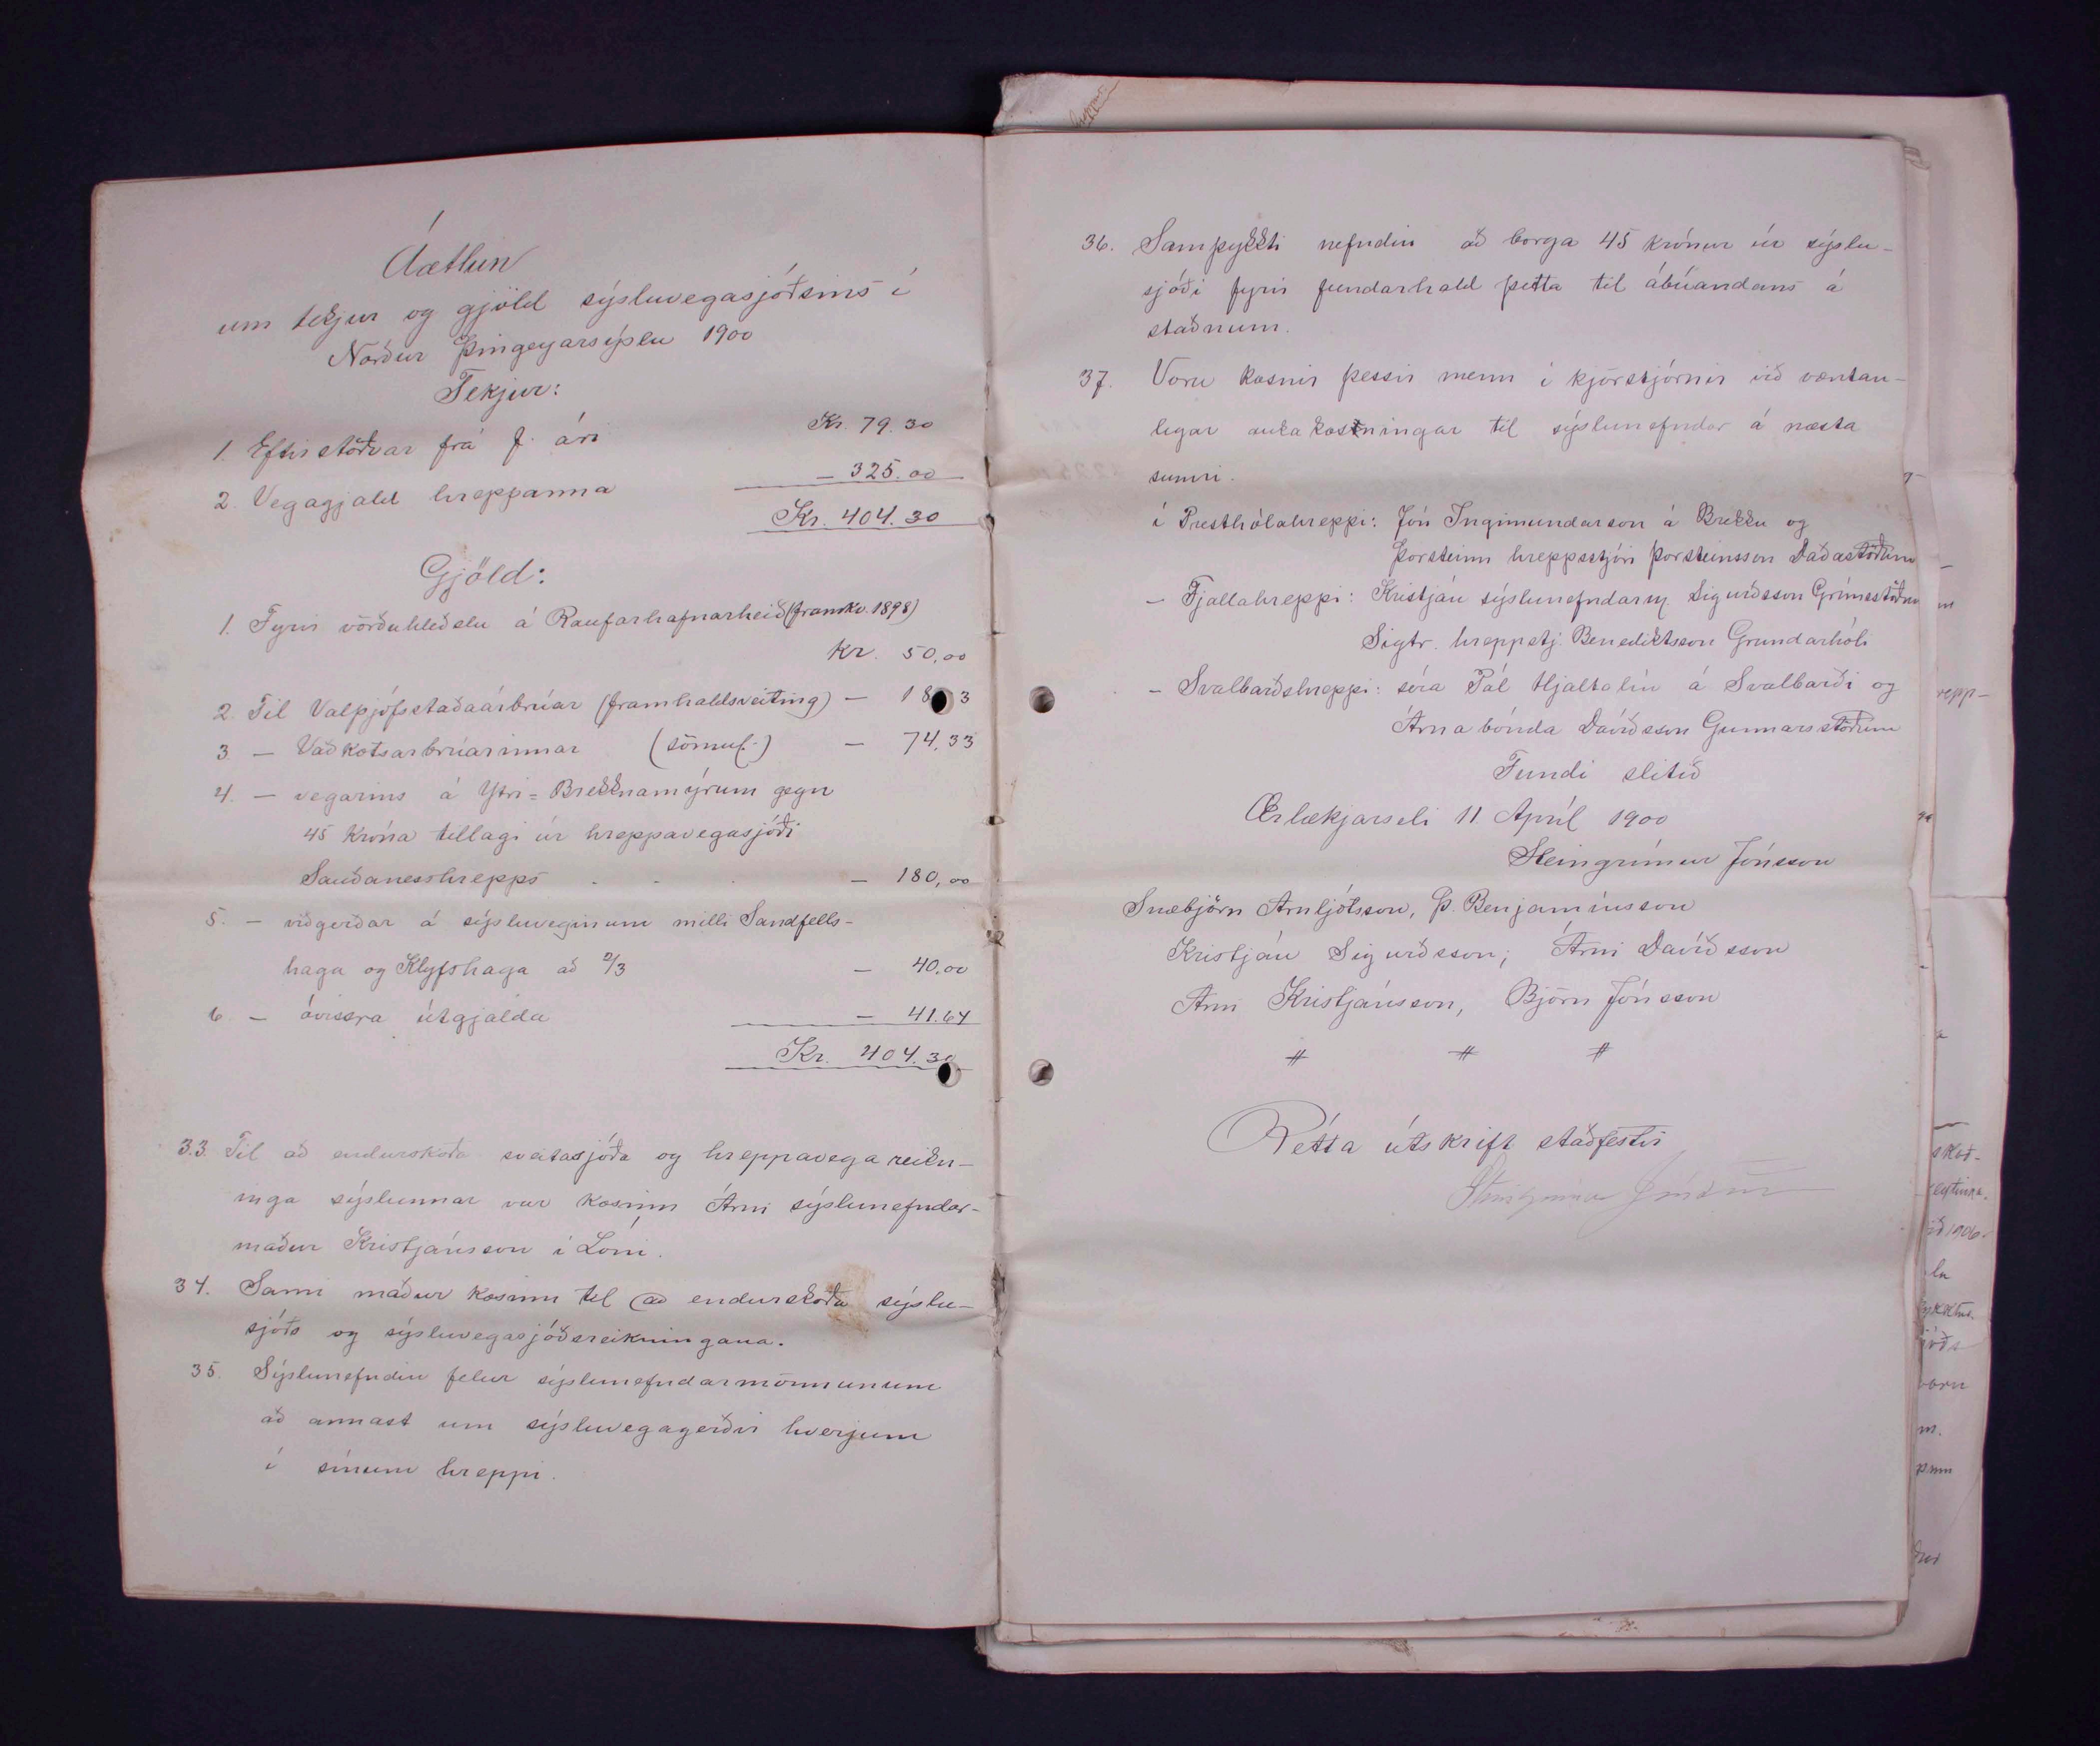 Áætlun
um tekjur og gjöld sýsluvegasjóðsins í
Norður Þingeyarsýslu 1900
Tekjur:
1. Eftirstöðvar frá f. ári Kr. 79.30
2. Vegagjald hreppanna – 325.00
Kr. 404.30
Gjöld:
1. Fyrir vörðuhleðslu á Raufarhafnarheið (framkv. 1898)
Kr. 50,00
2. Til Valþjófsstaðaárbrúar (framhaldsveiting) – 18 3
3 – Vaðkotsarbrúarinnar (sömul.) – 74,33
4. – vegarins á Ytri-Brekknamýrum gegn
45 króna tillagi úr hreppavegasjóði
Sauðanesshrepps – 180,00
5. – viðgerðar á sýsluveginum milli Sandfells-
haga og Klyfshaga að 2/3 – 40,00
6. – óvissra útgjalda – 41.64
Kr. 404.30
33. Til að endurskoða sveitasjóða og hreppavega reikn-
inga sýslunnar var kosinn Árni sýslunefndar-
maður Kristjánsson í Lóni.
34. Sami maður kosinn til að endurskoða sýslu-
sjóðs og sýsluvegasjóðsreikningana.
35. Sýslunefndin felur sýslunefndarmönnunum
að annast um sýsluvegagerðir hverjum
í sínum hreppi.
36. Samþykkti nefndin að borga 45 krónur úr sýslu-
sjóði fyrir fundarhald þetta til ábúandans á
staðnum.
37. Voru kosnir þessir menn í kjörstjórnir við væntan-
legar aukakosningar til sýslunefndar á næsta
sumri.
í Presthólahreppi: Jón Ingimundarson á Brekku og
Þorsteinn hreppsstjóri Þorsteinsson Daðastöðum
– Fjallahreppi: Kristján sýslunefndarm. Sigurðsson Grímsstöðum
Sigtr. hreppstj. Benediktsson Grundarhóli
– Svalbarðshreppi: séra Pál Hjaltalín á Svalbarði og
Árna bónda Davíðsson Gunnarsstöðum
Fundi slitið
Ærlækjarseli 11 Apríl 1900
Steingrímur Jónsson
Snæbjörn Arnljótsson, Þ. Benjamínsson
Kristján Sigurðsson; Árni Davíðsson
Árni Kristjánsson, Björn Jónsson
# # #
Rétta útskrift staðfestir
Steingrímur Jónsson